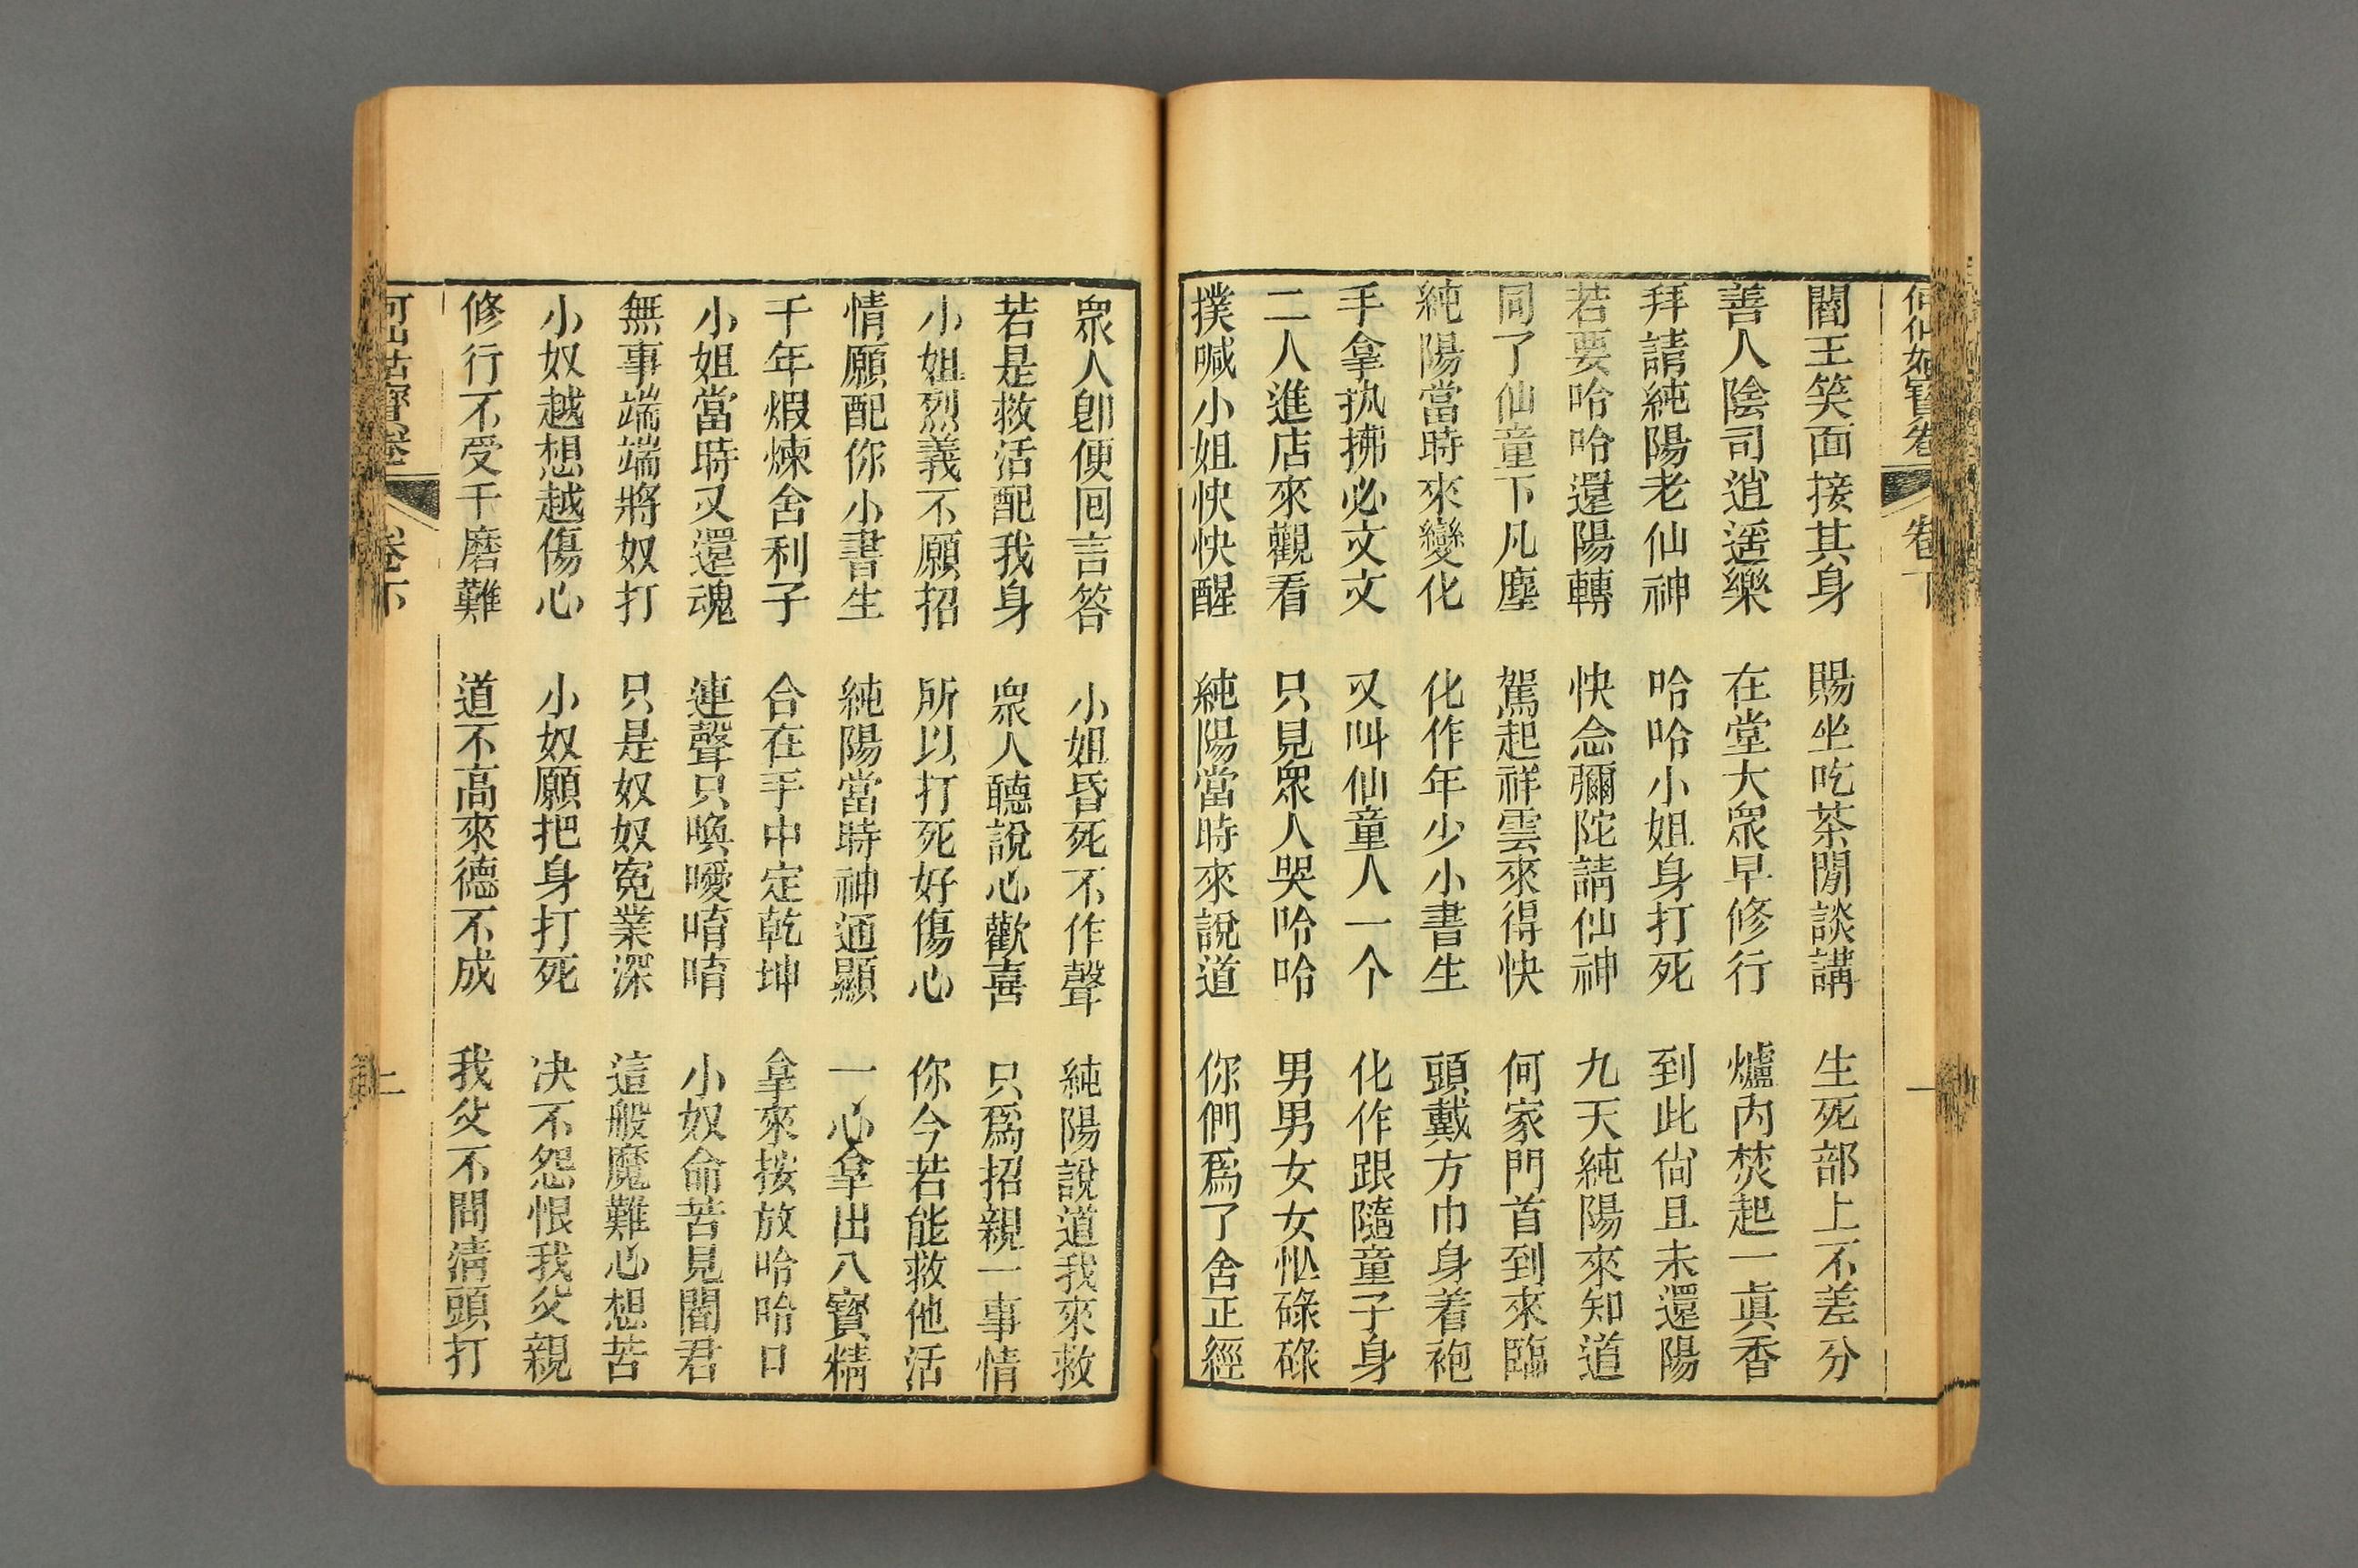 何仙姑寶卷 卷下 一
閻王笑面接其身 賜坐吃茶閒談講 生死部上不差分
善人陰司逍遥樂 在堂大眾早修行 爐內焚起一眞香
拜請純陽老仙神 哈哈小姐身打死 到此尙且未還陽
若要哈哈還陽轉 快念彌陀請仙神 九天純陽來知道
同了仙童下凡塵 駕起祥雲來得快 何家門首到來臨
純陽當時來變化 化作年少小書生 頭戴方巾身着袍
手拿执拂必文文 又叫仙童人一个 化作跟隨童子身
二人進店來觀看 只見眾人哭哈哈 男男女女忙碌碌
撲喊小姐快快醒 純陽當時來說道 你們爲了舍正經
眾人卽便囘言答 小姐昏死不作聲 純陽說道我來救
若是救活配我身 眾人聽說心歡喜 只爲招親一事情
小姐烈義不願招 所以打死好傷心 你今若能救他活
情願配你小書生 純陽當時神通顯 一心拿出八寶精
千年煆煉舍利子 合在手中定乾坤 拿來按放哈哈口
小姐當時又還魂 連聲只喚噯唷唷 小奴命苦見閻君
無事端端將奴打 只是奴奴寃業深 這般魔難心想苦
小奴越想越傷心 小奴願把身打死 决不怨恨我父親
修行不受千磨難 道不高來德不成 我父不問淸頭打
何仙姑寶卷 卷下 二